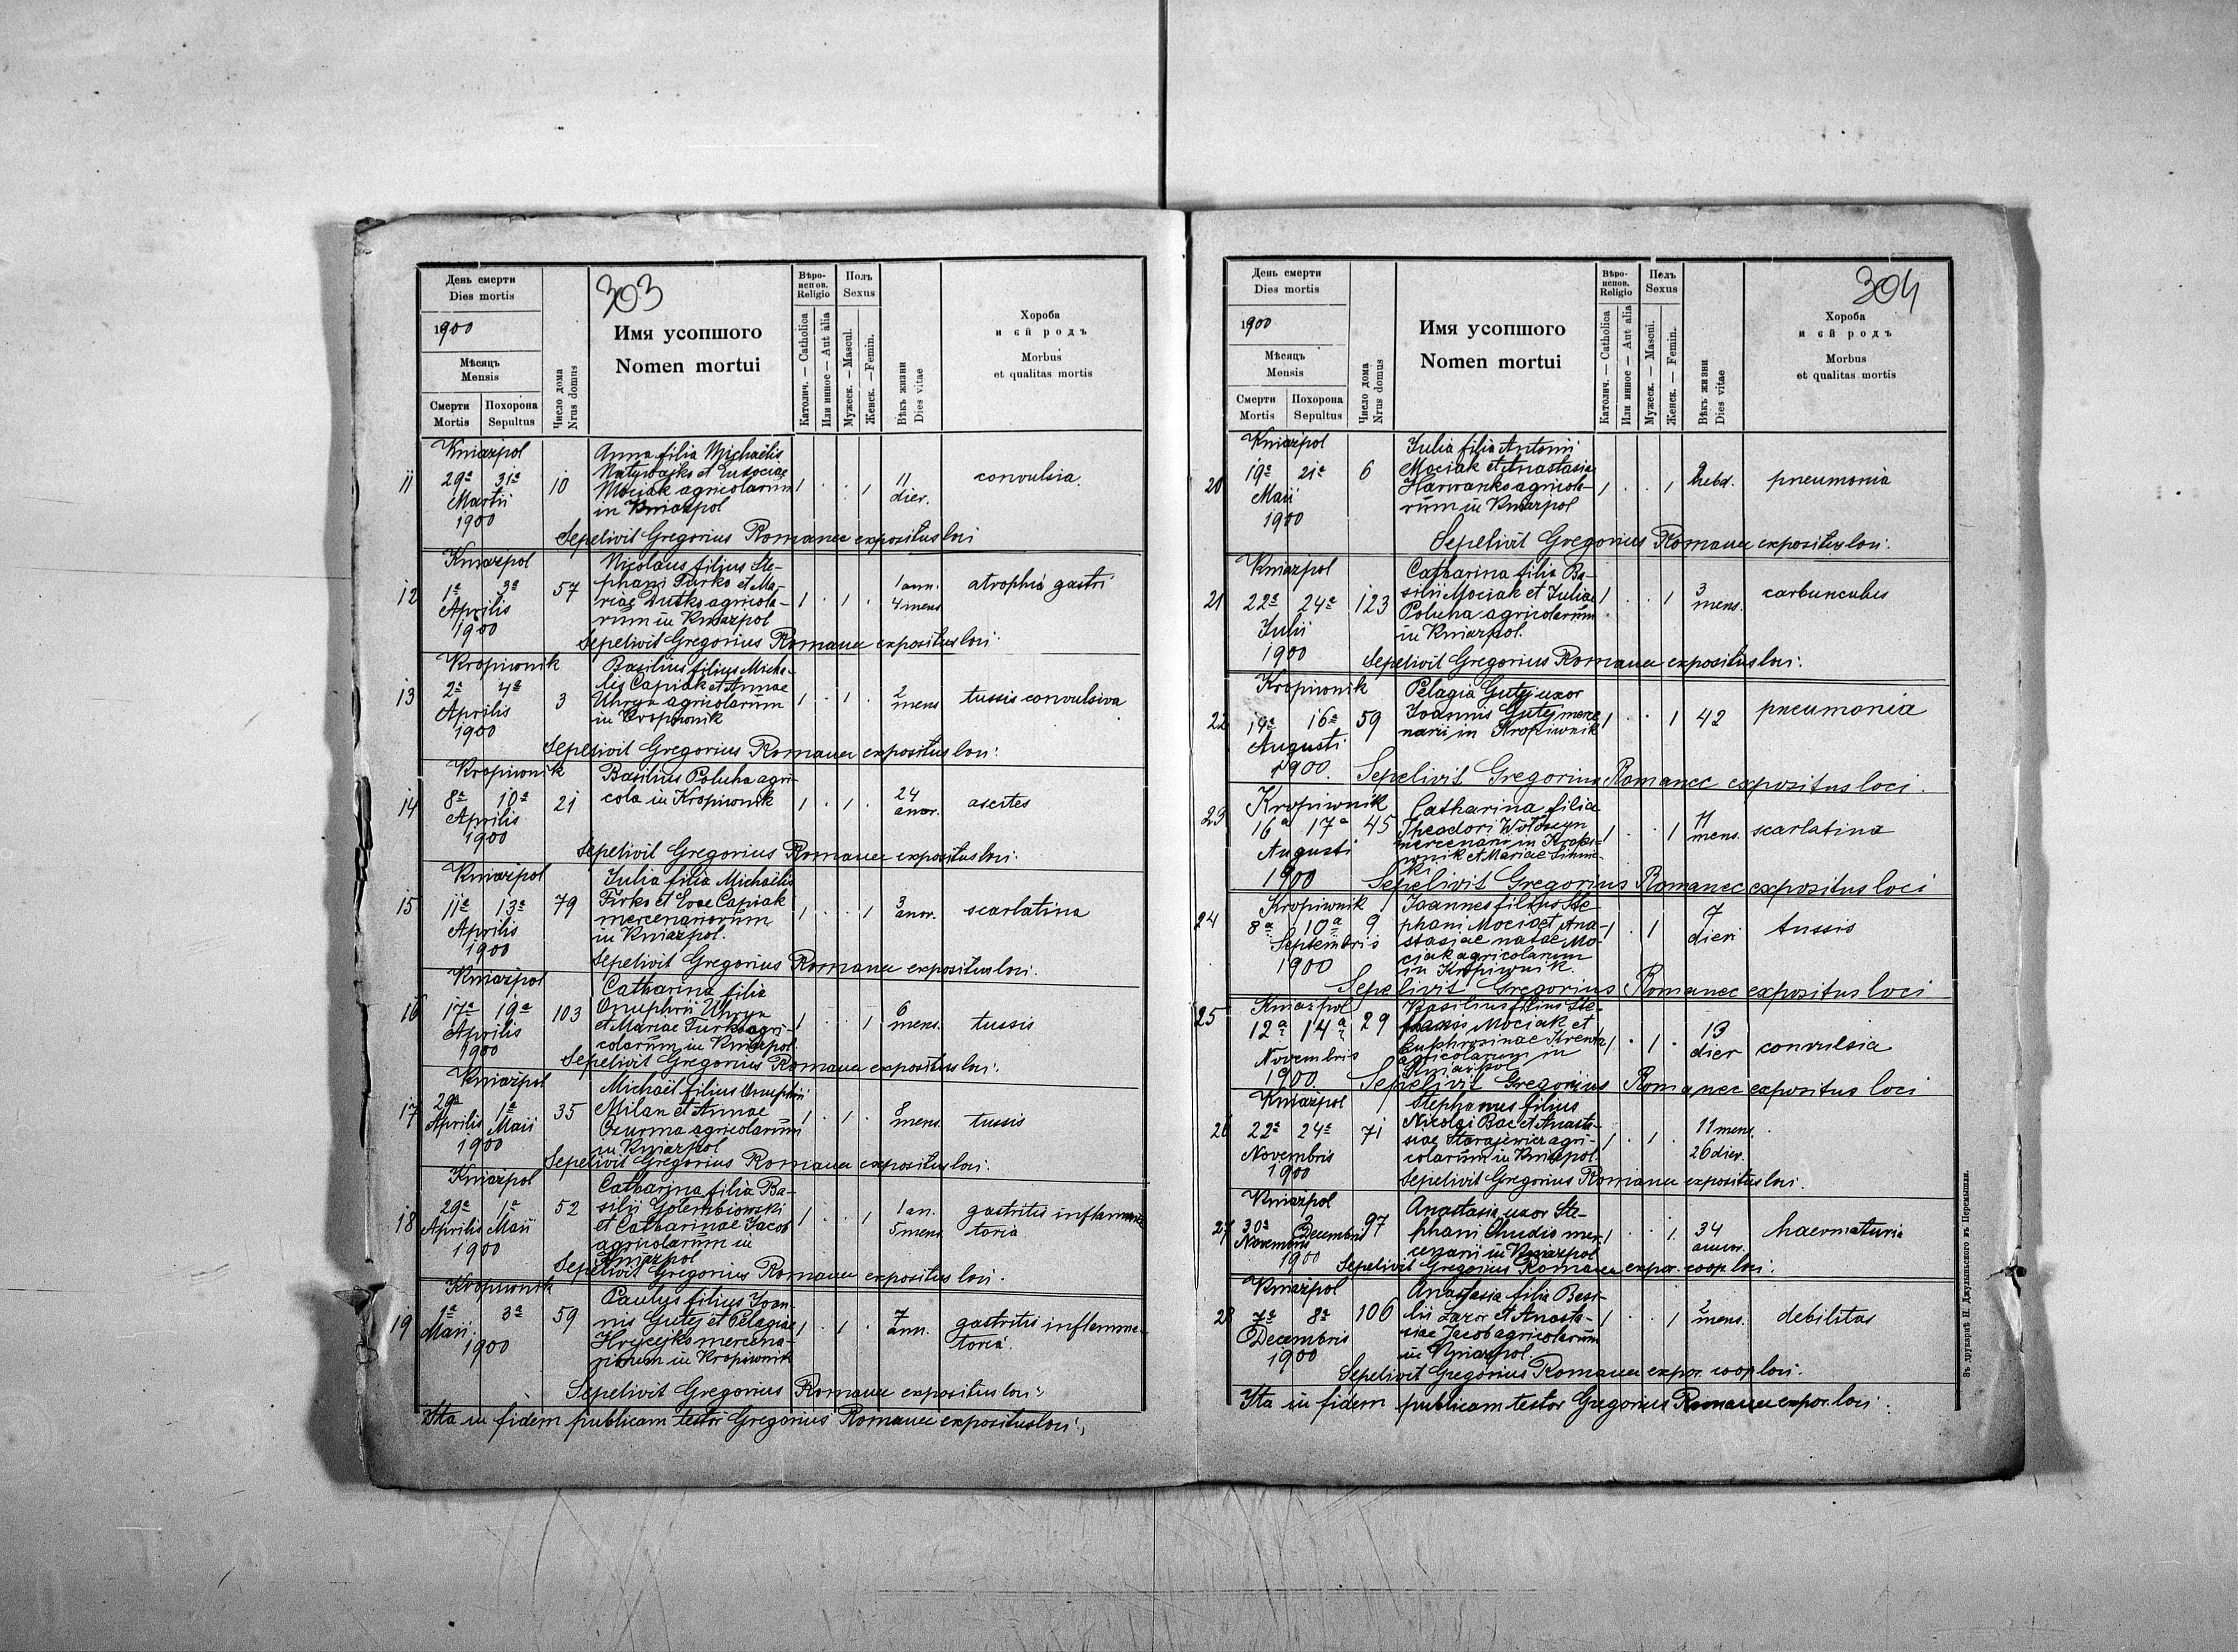 303
День смерти
Dies mortis
1900
Мѣсяць
Mensis
Смерти
Mortis
Похорона
Sepultus
Число дома
Nrus domus
Имя усопшого
Nomen mortui
Вѣро-
испов.
Religio
Католич. — Catholica
Или инное — Aut alia
Полъ
Sexus
Мужеск. — Mascul.
Женск. — Femin.
Вѣкъ жизни
Dies vitae
Хороба
и єй родъ
Morbus
et qualitas mortis
Kniażpol
11 29a 31a 10 1 . . 1 11 convulsia.
Martii dier.
1900
Anna filia Michaëlis
et Eudociae
Mociak agricolarum
in Kniażpol
Sepelivit Gregorius Romanec expositus loci
Kniażpol
12 1a 3a 57 1 . 1 . 1 ann. atrophia gastri
Aprilis 4 mens
1900
Nicolaus filius Ste-
phani Turko et Ma-
riae Dutko agricola-
rum in Kniażpol
Sepelivit Gregorius Romanec expositus loci
Kropiwnik
13 2a 4a 3 1 . 1 . 2 tussis convulsiva
Aprilis mens
1900
Basilius filius Micha-
lis Capiak et Annae
Uhryn agricolarum
in Kropiwnik
Sepelivit Gregorius Romanec expositus loci:
Kropiwnik
14 8a 10a 21 1 . 1 . 24 ascites
Aprilis anor.
1900
Basilius Poluha agri-
cola in Kropiwnik
Sepelivit Gregorius Romanec expositus loci.
Kniażpol
15 11a 13a 79 1 . . 1 3 scarlatina
Aprilis anor.
1900
Julia filia Michaëlis
Firko et Evae Capiak
mercenariorum
in Kniażpol.
Sepelivit Gregorius Romanec expositus loci.
Kniażpol
16 17a 19a 103 1 . . 1 6 tussis
Aprilis mens.
1900
Catharina filia
Onuphrii Uhryn
et Mariae Turko agri-
colarum in Kniażpol.
Sepelivit Gregorius Romanec expositus loci.
Kniażpol
17 29a 1a 35 1 . 1 . 8 tussis
Aprilis Maii mens.
1900
Michaël filius Onuphrii
Milan et Annae
Czurma agricolarum
in Kniażpol
Sepelivit Gregorius Romanec expositus loci.
Kniażpol
18 29a 1a 52 1 . . 1 1 an. gastritis inflamma
Aprilis Maii 5 mens toria
1900
Catharina filia Ba-
silii Golembiowski
et Catharinae Jacob
agricolarum in
Kniażpol
Sepelivit Gregorius Romanec expositus loci.
Kropiwnik
19 1a 3a 59 1 . 1 . 7 gastritis inflamma-
Maii. ann. toria.
1900
Paulus filius Joan-
nis Gutej et Pelagiae
Hrycejko mercena-
riorum in Kropiwnik
Sepelivit Gregorius Romanec expositus loci:
Ita in fidem publicam testor Gregorius Romanec expositus loci:
304
День смерти
Dies mortis
1900
Мѣсяць
Mensis
Смерти
Mortis
Похорона
Sepultus
Число дома
Nrus domus
Имя усопшого
Nomen mortui
Вѣро-
испов.
Religio
Католич. — Catholica
Или инное — Aut alia
Полъ
Sexus
Мужеск. — Mascul.
Женск. — Femin.
Вѣкъ жизни
Dies vitae
Хороба
и єй родъ
Morbus
et qualitas mortis
Kniażpol
20 19a 21a 6 1 . . 1 2 hebd. pneumonia
Maii
1900
Julia filia Antonii
Mociak et Anastasiae
agricola-
rum in Kniażpol
Sepelivit Gregorius Romanec expositus loci.
Kniażpol
21 22a 24a 123 1 . . 1 3 carbunculus
Julii mens.
1900
Catharina filia Ba-
silii Mociak et Juliae
Poluha agricolarum
in Kniażpol.
Sepelivit Gregorius Romanec expositus loci.
Kropiwnik
22 14a 16a 59 1 . . 1 42 pneumonia
Augusti
1900.
Pelagia Gutej uxor
Joannis Gutej merce
narii in Kropiwnik
Sepelivit Gregorius Romanec expositus loci.
Kropiwnik
23 16a 17a 45 1 . . 1 11 scarlatina
Augusti mens.
1900
Catharina filia
Theodori Wołoszyn
mercenarii in Kropi-
wnik et Mariae
Sepelivit Gregorius Romanec expositus loci
Kropiwnik
24 8a 10a 9 1 . 1 7 tussis
Septembris dieri
1900
Joannes filius Ste-
phani Mociak et Ana-
stasiae natae Mo-
ciak agricolarum
in Kropiwnik.
Sepelivit Gregorius Romanec expositus loci
Kniażpol
25 12a 14a 29 1 . 1 . 13 convulsia
Novembris dier
1900.
Basilius filius Ste-
phani Mociak et
Euphrosinae
agricolarum in
Kniażpol
Sepelivit Gregorius Romanec expositus loci
Kniażpol
26 22a 24a 71 1 . 1 . 11 mens.
Novembris 26 dier.
1900
Stephanus filius
Nicolai Bac et Anasta-
siae Starajewicz agri-
colarum in Kniażpol
Sepelivit Gregorius Romanec expositus loci.
Kniażpol
27 30a 2 97 1 . . 1 34 haematuria
Novembris Decembris annor.
1900
Anastasia uxor Ste-
phani Chudio mer-
cenarii in Kniażpol
Sepelivit Gregorius Romanec expos. coop. loci.
Kniażpol
28 7a 8a 106 1 . . 1 2 debilitas
Decembris mens.
1900
Anastasia filia Basi-
lii Lazor et Anasta-
siae Jacob agricolarum
in Kniażpol.
Sepelivit Gregorius Romanec expos. coop loci.
Ita in fidem publicam testor Gregorius Romanec expos. loci.
Зъ друкарнѣ Н. Джулыньского въ Перемышли.